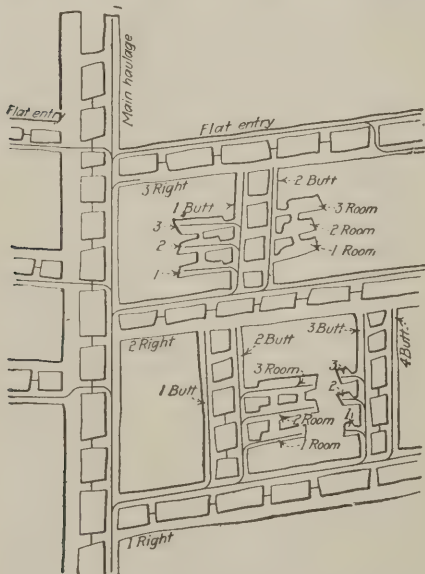 1
Main haulage
Flat entry
Flat entry
3 Right
2 Butt
1 Butt
3 Room
3
2 Room
2
1 Room
1
2 Right
2 Butt
3 Butt
4 Butt
1 Butt
3 Room
3
2
2 Room
1
1 Room
1 Right